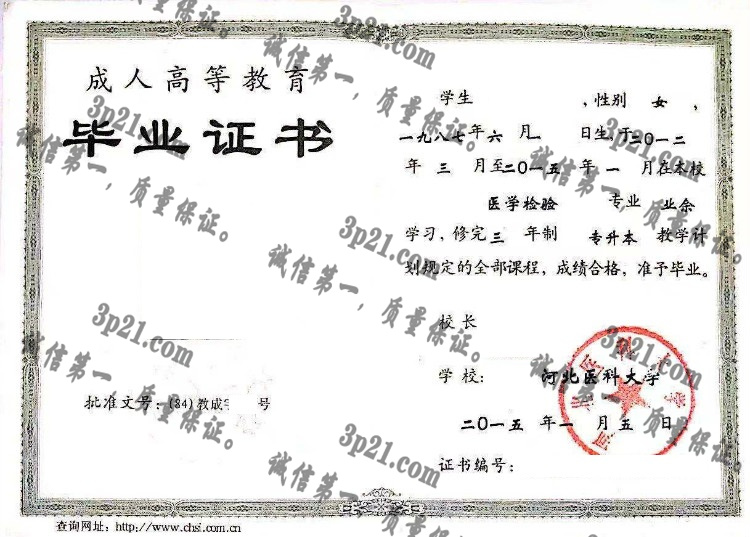 成人高等教育
毕业证书
批准文号：(84)教成 号
学生 ，性别 女，
一九八七年六月 日生，于二〇一二
年 三 月至二〇一五年 一 月在本校
医学检验 专业 业余
学习，修完三 年制 专升本 教学计
划规定的全部课程，成绩合格，准予毕业。
校长
学校： 河北医科大学
二〇一五 年 一 月 五 日
证书编号：
查询网址：http://www.chsi.com.cn
3p21.com
诚信第一，质量保证。
3p21.com
诚信第一，质量保证。
3p21.com
诚信第一，质量保证。
3p21.com
诚信第一，质量保证。
3p21.com
诚信第一，质量保证。
3p21.com
诚信第一，质量保证。